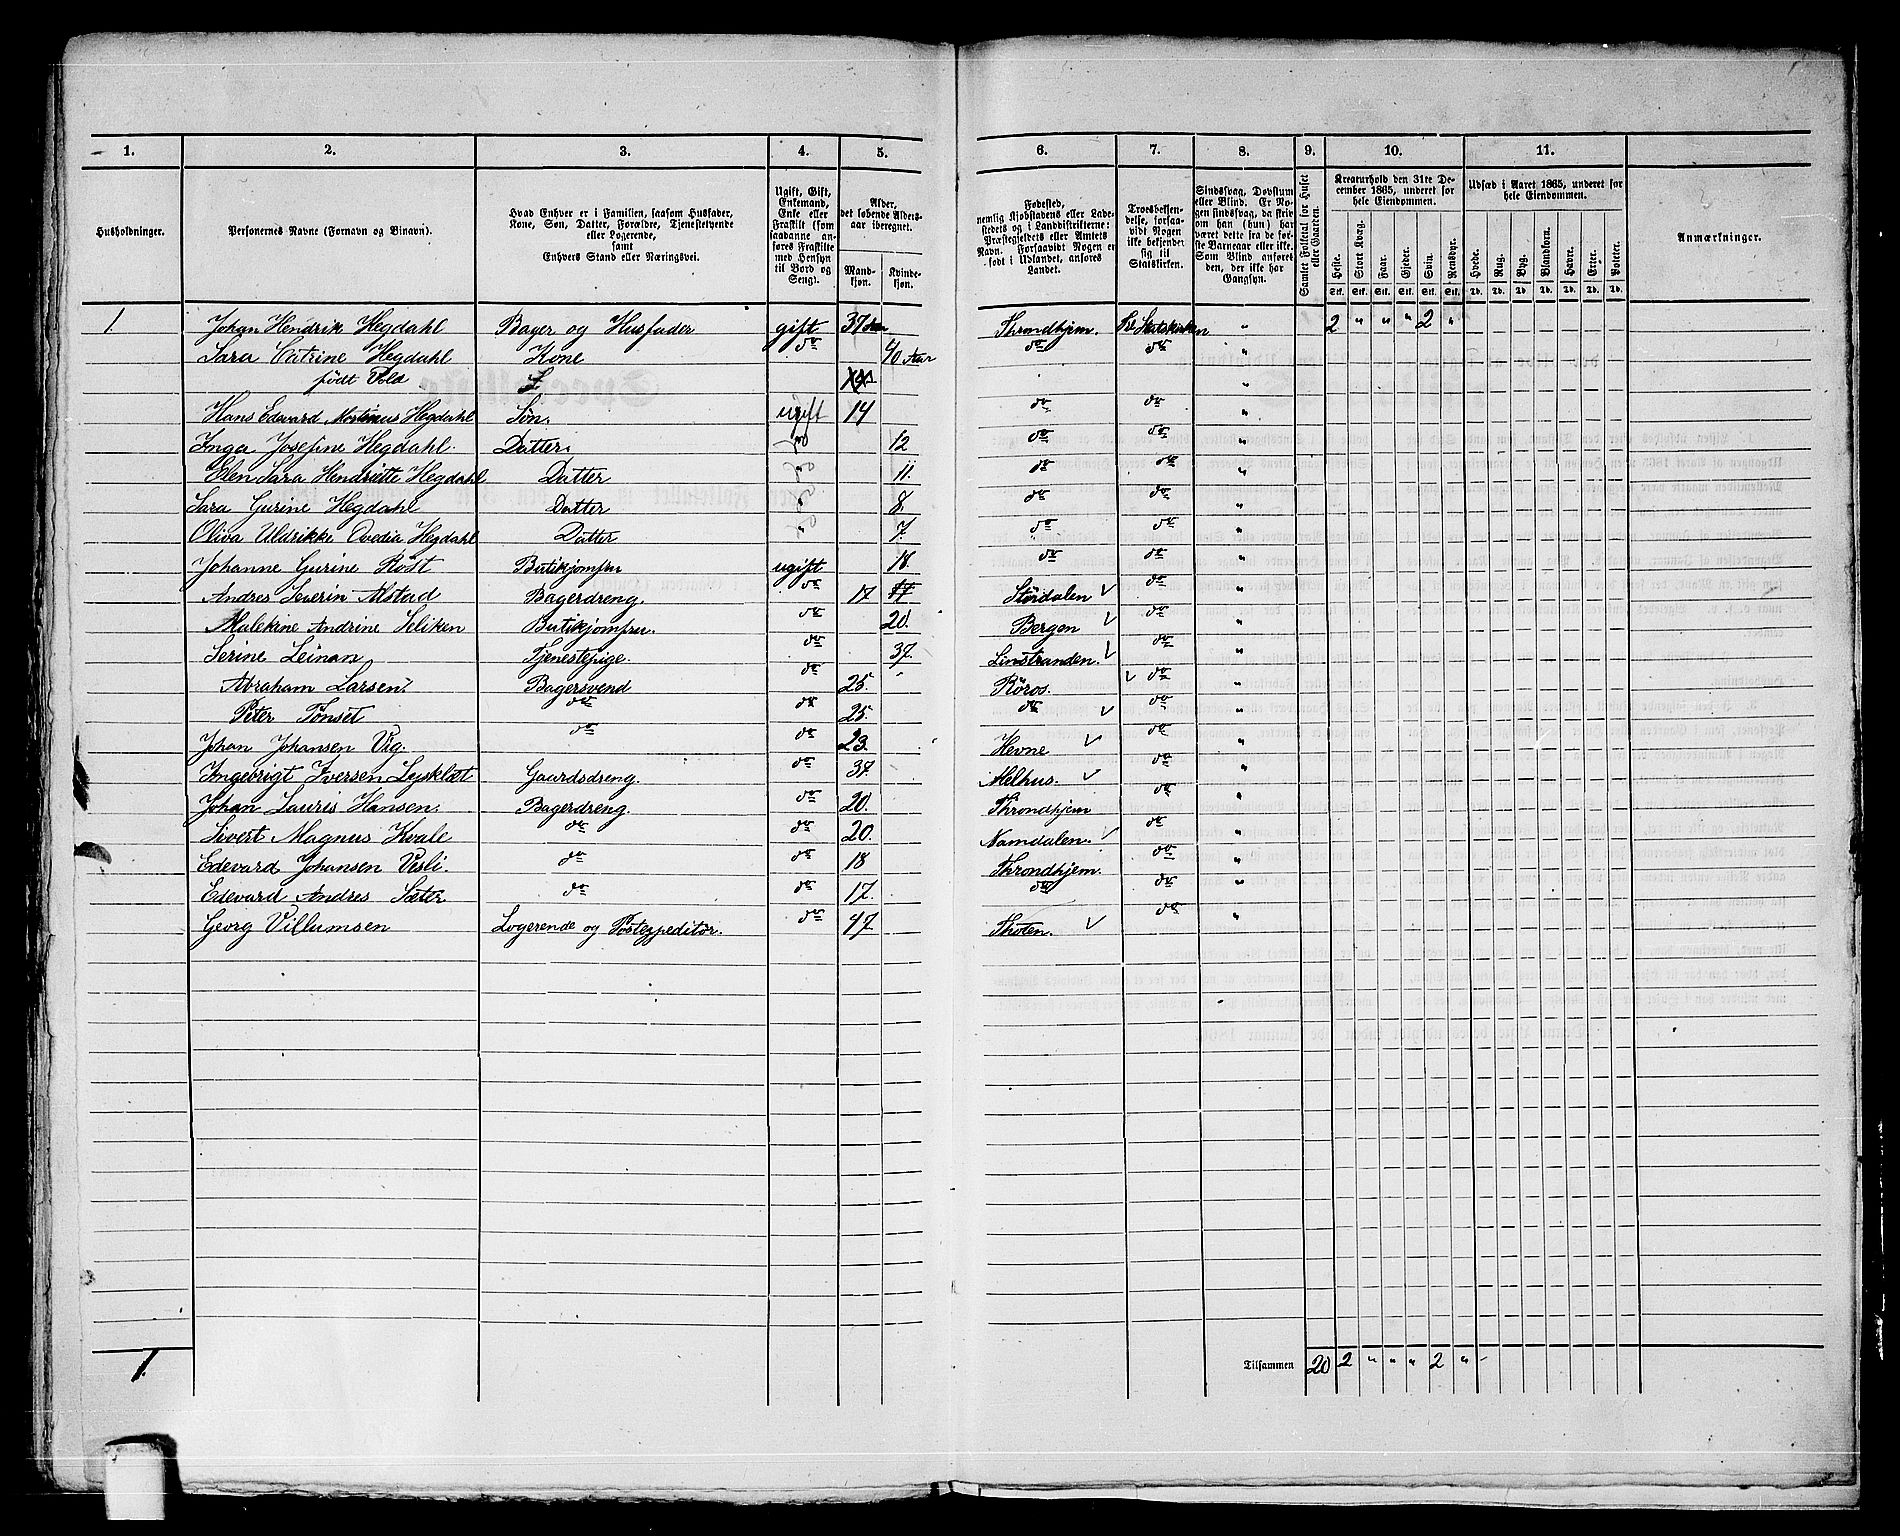 1. 2. 3. 4. 5. 6. 7. 8. 9. 10. 11.
Husholdninger.
Personernes Navne (Fornavn og Binavn).
Hvad Enhver er i Familien, saasom Husfader,
Kone, Søn, Datter, Forældre, Tjenestetyende
eller Logerende,
samt
Enhvers Stand eller Næringsvei.
Ugift, Gift,
Enkemand,
Enke eller
Fraskilt (som
saadanne an-
føres Fraskilte
med Hensyn
til Bord og
Seng).
Alder,
det løbende Alders-
aar iberegnet.
Mand-
kjøn.
Kvinde-
kjøn.
Fødested,
nemlig Kjøbstadens eller Lade-
stedets og i Landdistrikterne:
Præstegjeldets eller Annexets
Navn. Forsaavidt Nogen er
født i Udlandet, anføres
Landet.
Troesbekjen-
delse, forsaa-
vidt Nogen
ikke bekjender
sig til
Statskirken.
Sindssvag, Døvstum
eller Blind. Er No-
gen sindssvag, da skriv
om han (hun) har
været dette fra de før-
ste Barneaar eller ikke.
Som Blind anføres
den, der ikke har
Gangsyn.
Samlet Folketal for Huset
eller Gaarden.
Kreaturhold den 31te De-
cember 1865, underet for
hele Eiendommen.
Heste. Stort Kvæg. Faar. Gjeder. Svin. Rensdyr.
Stk. Stk. Stk. Stk. Stk. Stk.
Udsæd i Aaret 1865, underet for
hele Eiendommen.
Hvede. Rug. Byg. Blandkorn. Havre. Erter. Poteter.
Td. Td. Td. Td. Td. Td. Td.
Anmærkninger.
1. Johan Hendrik Hegdahl Bager og Husfader gift 37 Aar Throndhjem. Til Statskirken " 2 " " " 2 "
Sara Catrine Hegdahl Kone do 40 Aar do do "
født Vold "
Hans Edevard Mortinus Hegdahl Søn. ugift 14 do do "
Inga Josefine Hegdahl. Datter. 12 do do "
Elen Sara Hendritte Hegdahl Datter 11. do do "
Sara Gurine Hegdahl Datter 8. do do "
Oliva Uldrikke Ovedia Hegdahl Datter 7. do do "
Johanne Gurine Rost Butikjomfru ugift 18. do do "
Andres Severin Alstad Bagerdreng. do 17 17 Stördalen do "
Malekene Andrine Seliken Butikjomfru. do 20. Bergen do "
Serine Leinan Tjenestepige. do 37. Linstranden. do "
Abraham Larsen. Bagersvend do 25. Röros. do "
Peter Tönset do do 25. do do "
Johan Johansen Vig. do do 23. Hevne do "
Ingebrigt Iversen Lysklæt Gaardsdreng. do 37. Melhus. do "
Johan Lauris Hansen. Bagerdreng. do 20. Throndhjem do "
Sivert Magnus Kvale do do 20. Namdalen. do "
Edevard Johansen Vesli. do do 18 Throndhjem. do "
Edevard Andres Sæter do do 17. do do "
Georg Villumsen Logerende og Postexpeditör. do 47 Thoten. do "
1. Tilsammen 20 2 " " " 2 " -